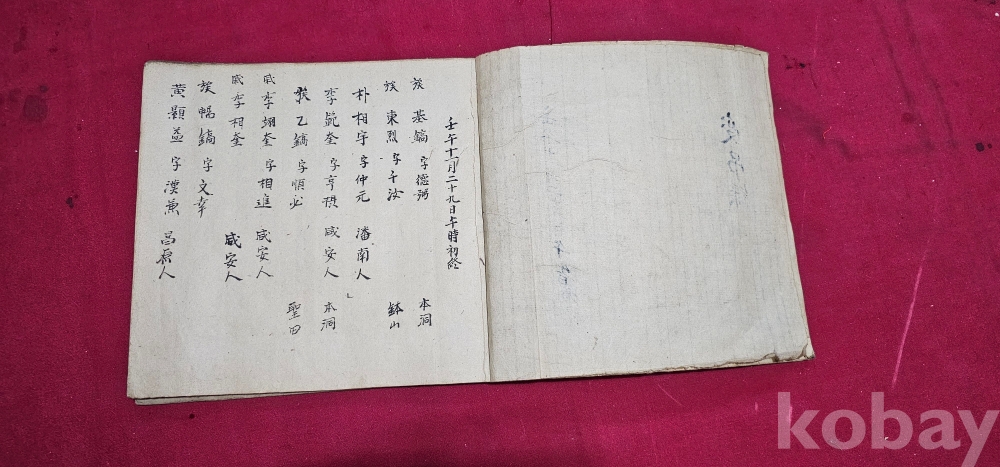 壬午十一月二十九日午時初終
族 基鎬 字德弼 本洞
族 東烈 字千汝 鉢山
朴相宇 字仲元 潘南人
李範奎 字亨 咸安人 本洞
族乙鎬 字順必 聖田
戚李翊奎 字相進 咸安人
戚李相奎 咸安人
族 鎬 字文幸
黃顯益 字漢兼 昌原人
kobay